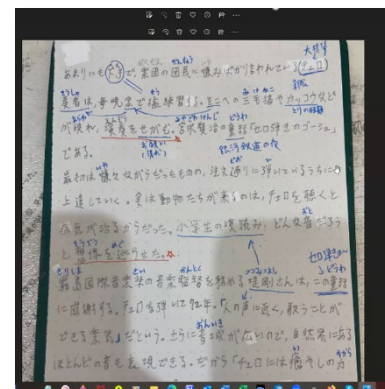 あまりにも下手で、楽団の団長に嫌みばかりいわれている チェロ
奏者は、毎晩家で猛練習する。そこへの三毛猫やカッコウなど
が現れ、演奏をせがむ。宮沢賢治の童話「セロ弾きのゴーシュ」
である。
最初は嫌々ながらだったものの、注文通りに弾いているうちに
上達していく。実は動物たちが来るのは、チェロを聴くと
病気が治るからだった。小学生の頃読み、どんな音だろう
と想像を巡らせた。
音楽祭の音楽監督を務める堤剛さんは、この童話
に感謝する。チェロを弾いて「人の声に近く、歌うことが
できる楽器」だという。さらに音域が広いので、自然界にある
ほとんどの音も表現できる。だから「チェロには癒やしの力